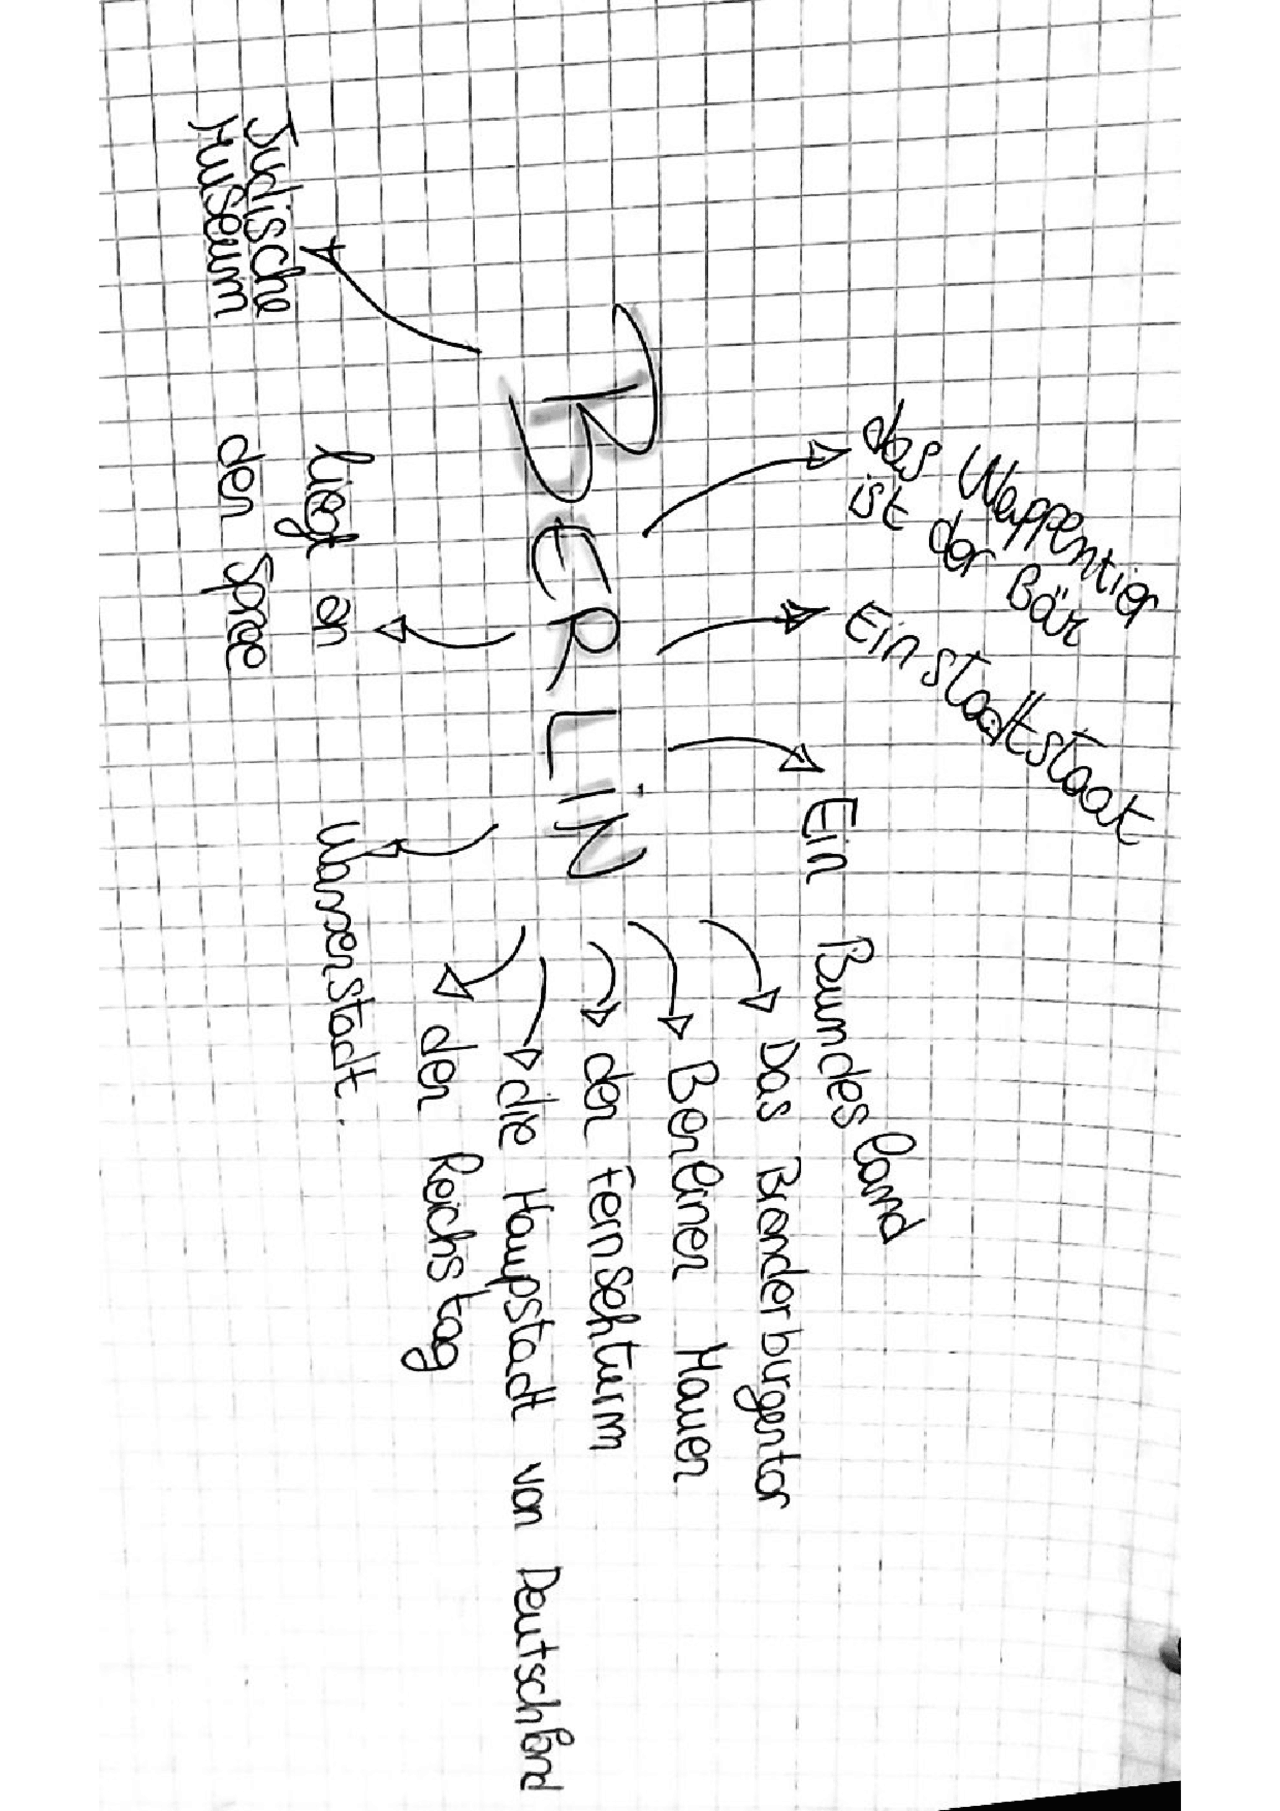 BERLiN
das Wappentier
ist der Bär
Ein stadtstaat
Ein Bundes land
Das Branderburgentor
Berliner Mauer
der Fernsehturm
die Haupstadt von Deutschland
der Reichstag
liegt an
der Spree
Jüdische
Museum